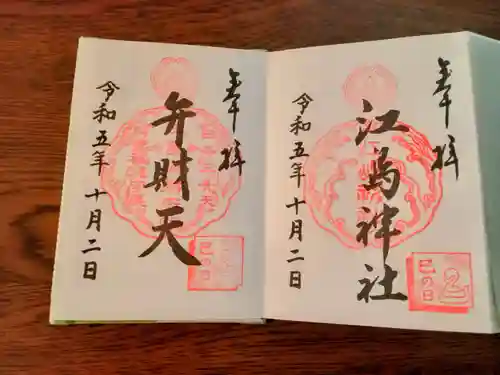 奉拝
江島神社
令和五年十月二日
巳の日
奉拝
弁財天
令和五年十月二日
巳の日